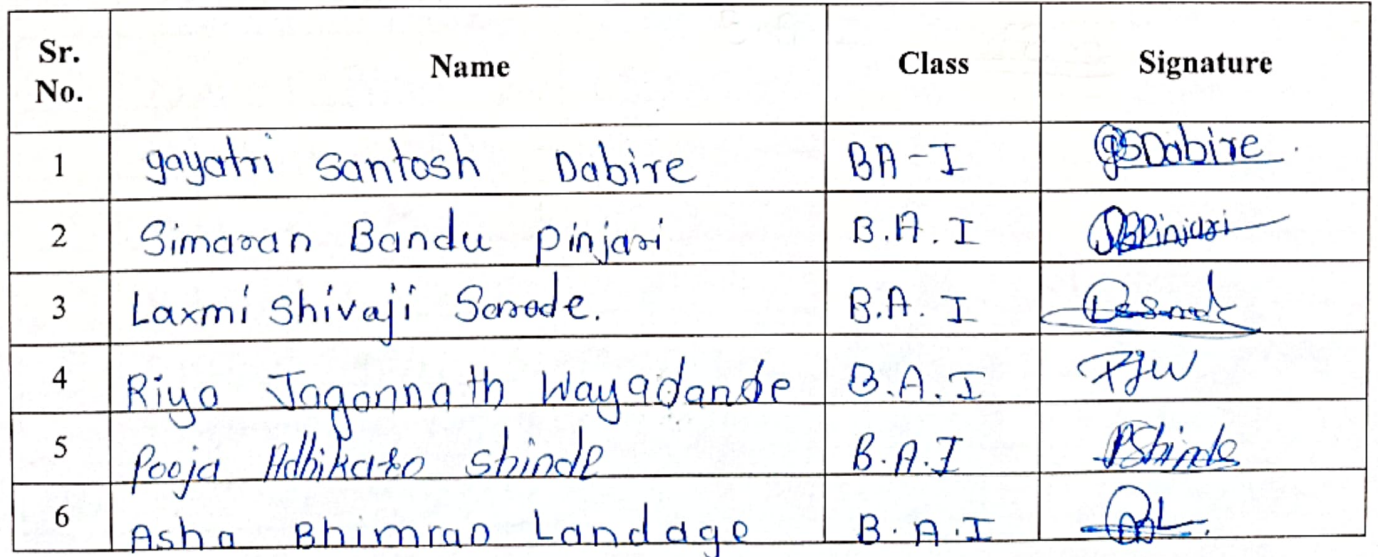 Sr. No. Name Class Signature
1 gayatri santosh Dabire BA-I GSDabire
2 Simaran Bandu pinjari B.A.I SBPinjari
3 Laxmi Shivaji Sarode. B.A.I
4 Riya Jagannath Waygdande B.A.I RJW
5 Pooja Adhikrao shinde B.A.I PShinde
6 Asha Bhimrao Landage B.A.I